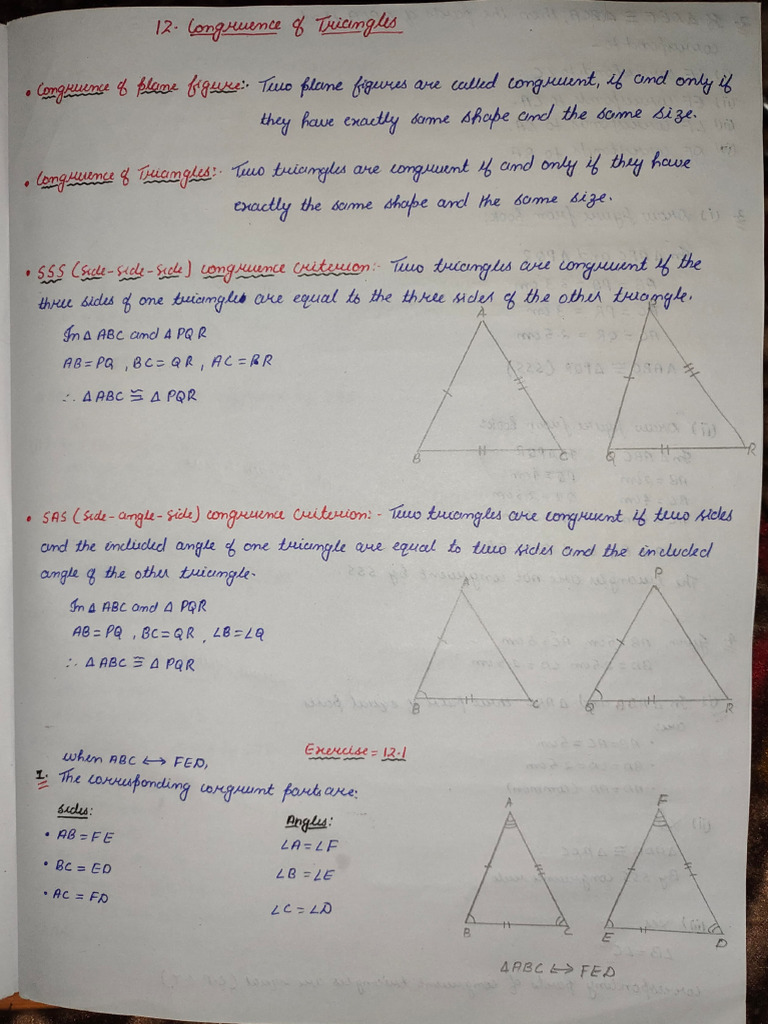 12. Congruence of Triangles
• Congruence of plane figure:- Two plane figures are called congruent, if and only if
they have exactly same shape and the same size.
• Congruence of Triangles:- Two triangles are congruent if and only if they have
exactly the same shape and the same size.
• SSS (side-side-side) congruence criterion:- Two triangles are congruent if the
three sides of one triangle are equal to the three sides of the other triangle.
In △ ABC and △ PQR
AB=PQ , BC=QR , AC=PR
∴ △ ABC ≅ △ PQR
A
B
C
P
Q
R
• SAS (side-angle-side) congruence criterion:- Two triangles are congruent if two sides
and the included angle of one triangle are equal to two sides and the included
angle of the other triangle.
In △ ABC and △ PQR
AB=PQ , BC=QR , ∠B=∠Q
∴ △ ABC ≅ △ PQR
A
B
C
P
Q
R
Exercise = 12.1
when ABC ↔ FED,
1. The corresponding congruent parts are:
Sides:
• AB=FE
• BC = ED
• AC = FD
Angles:
∠A=∠F
∠B=∠E
∠C=∠D
A
B
C
F
E
D
△ABC ↔ FED